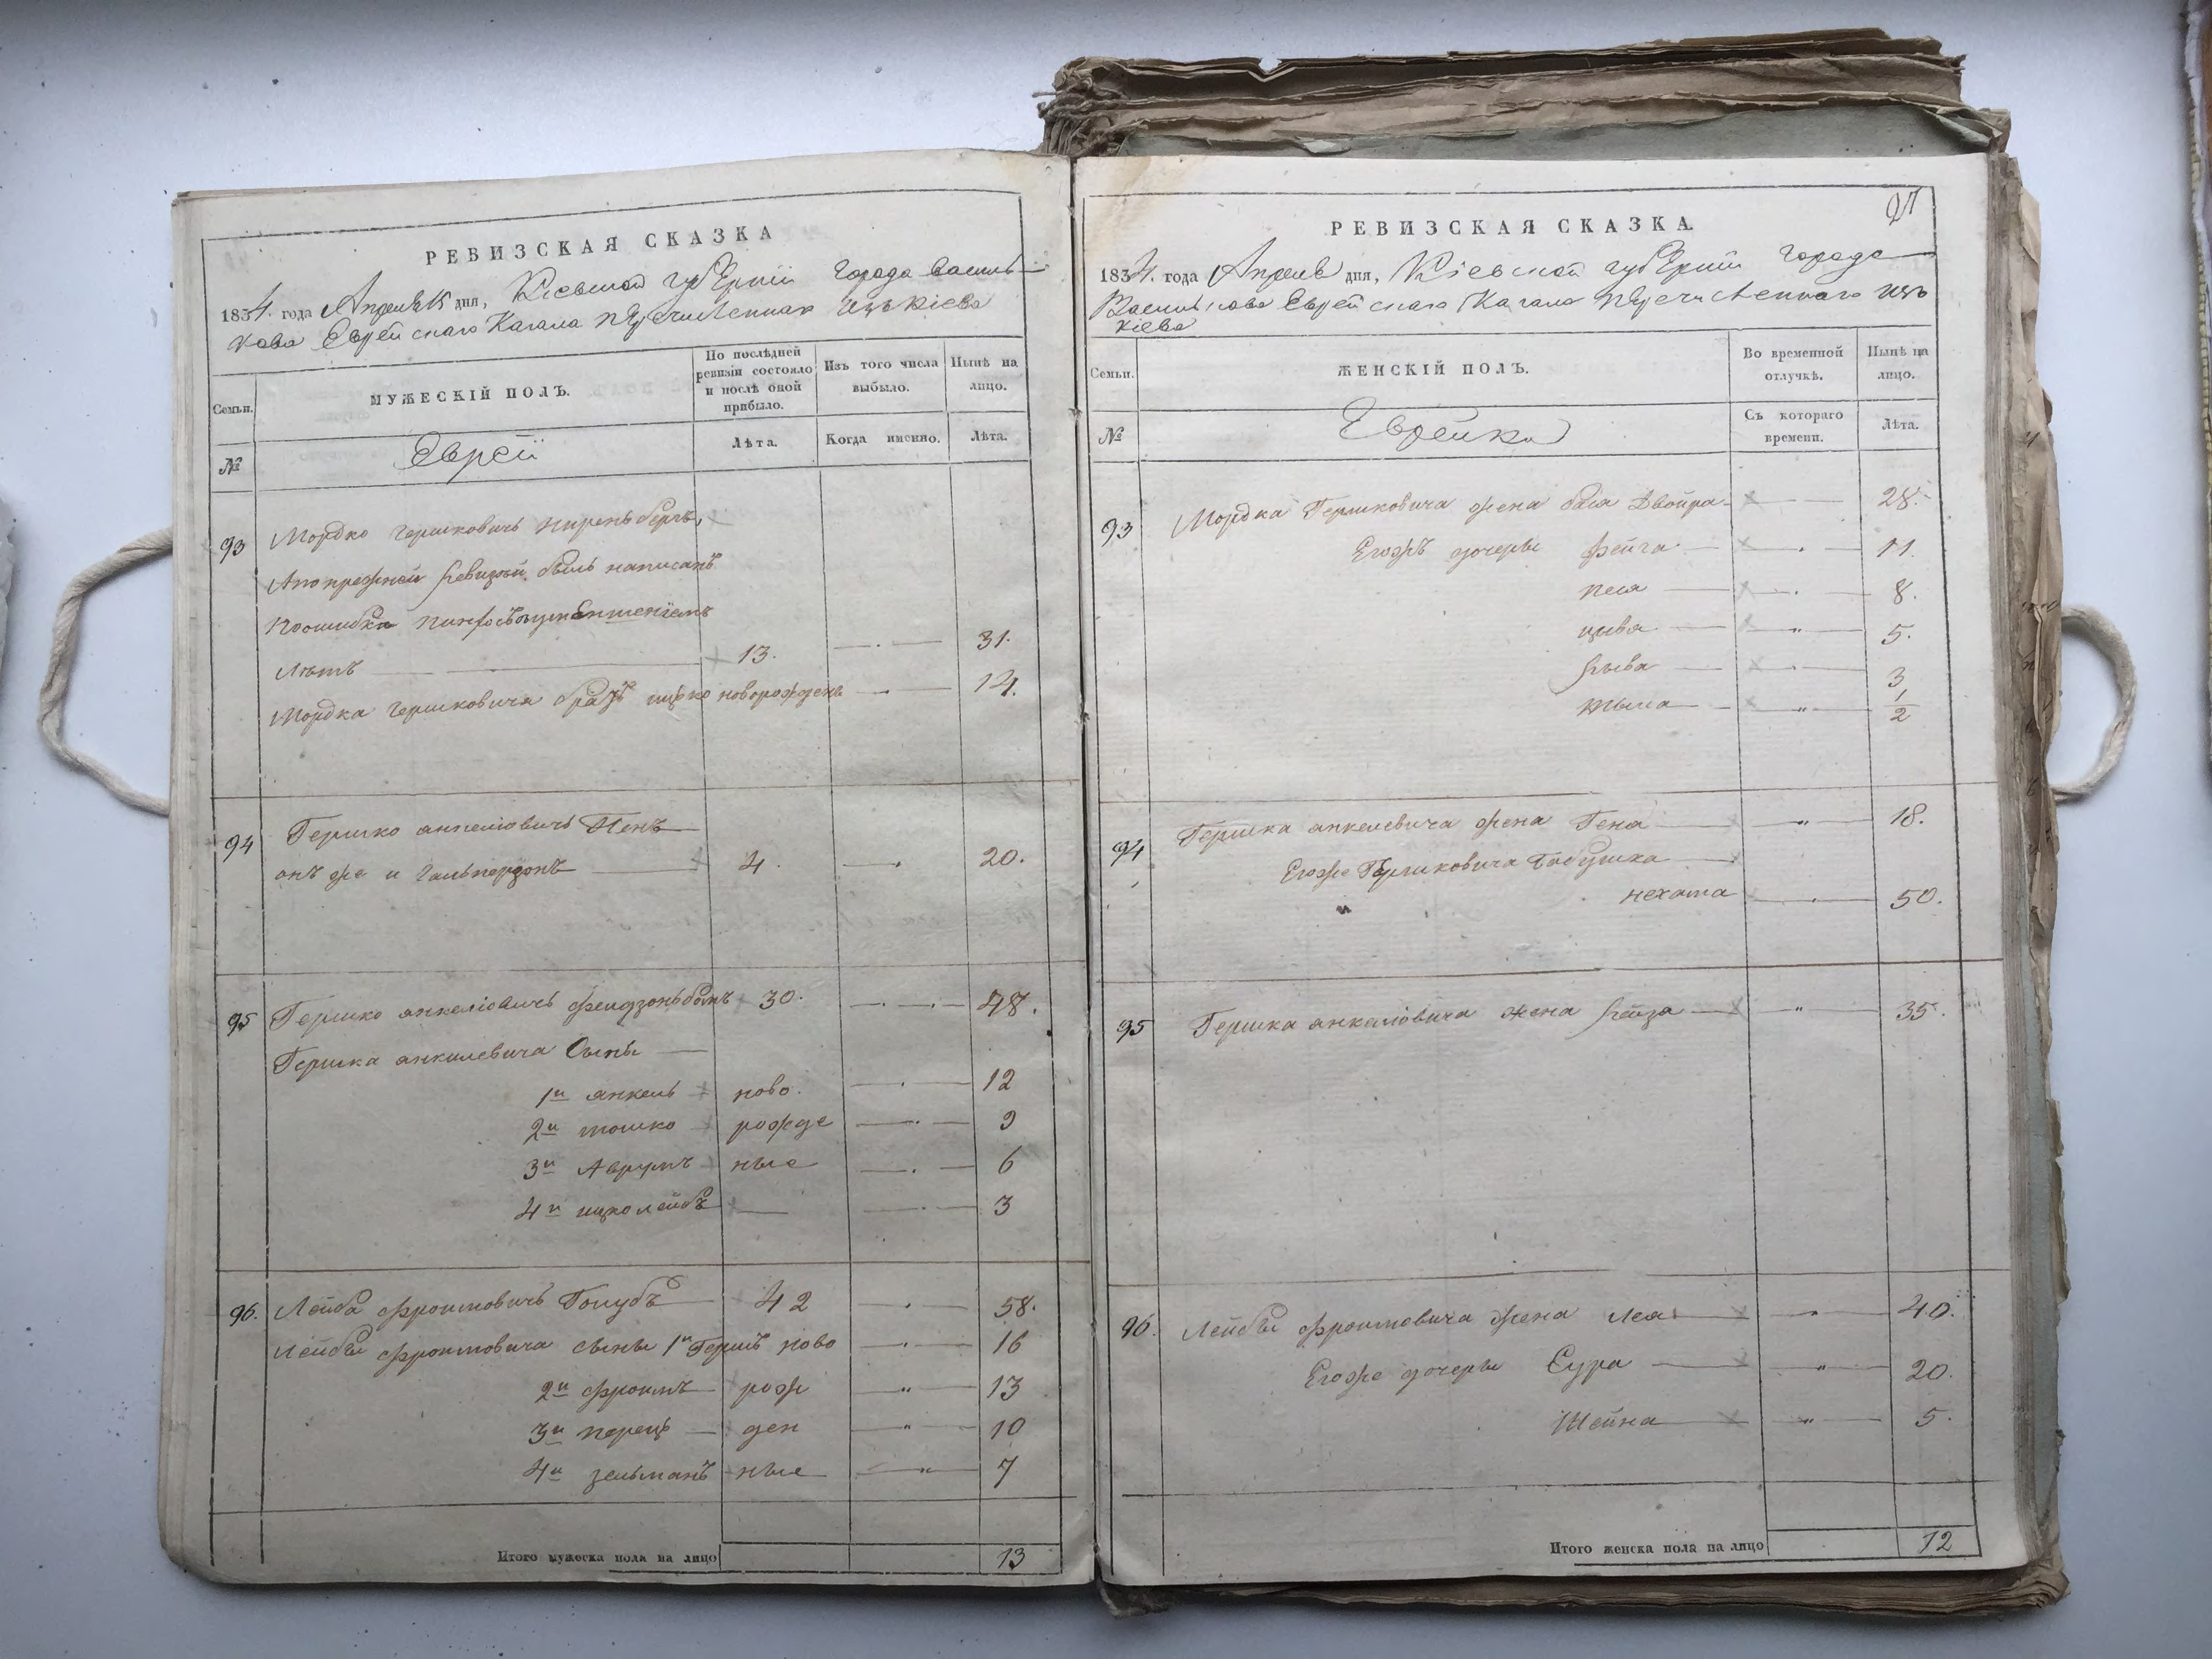 РЕВИЗСКАЯ СКАЗКА
1834. года Апреля 15 дня, Кіевской губерніи города Василь-
кова Еврейскаго Кагала перечисленнаго изъ Кіева
Семьи.
МУЖЕСКІЙ ПОЛЪ.
По послѣдней ревизіи состояло и послѣ оной прибыло.
Изъ того числа выбыло.
Нынѣ на лицо.
№
Еврей
Лѣта.
Когда именно.
Лѣта.
93 Мордко Гершковичъ Ниренбергъ,
Апопрежней ревизіи былъ написанъ
поошибки
Лѣтъ 13. 31.
Мордка Гершковича братъ ицко новорожденъ 14.
94 Гершко анкеліовичъ Пенъ
онъ же и Гальперзонъ 4. 20.
95 Гершко анкеліовичъ 30. 48.
Гершка анкилевича Сыны
1й анкель ново. 12
2й мошко рожде 9
3й Аврумъ ные 6
4й ицколейбъ 3
96. Лейба Фроимовичъ Голубъ 42 58.
Лейбы Фроимовича сыны 1й Гершъ ново 16
2й Фроимъ рож 13
3й перецъ ден 10
4й зельманъ ные 7
Итого мужеска пола на лицо 13
РЕВИЗСКАЯ СКАЗКА.
1834. года Апреля дня, Кіевской губерніи города
Василькова Еврейскаго Кагала перечисленнаго изъ
Кіева
Семьи.
ЖЕНСКІЙ ПОЛЪ.
Во временной отлучкѣ.
Нынѣ на лицо.
№
Еврейки
Съ котораго времени.
Лѣта.
93 Мордка Гершковича жена бася Двойра 28.
Егожъ дочеры фейга 11.
песя 8.
цива 5.
рыва 3
1/2
94 Гершка анкелевича жена Гена 18.
Егоже Гершковича бабушка
нехама 50.
95 Гершка анкеліовича жена рейза 35.
96. Лейбы Фроимовича жена Лея 40.
Егоже дочеры Сура 20.
Шейна 5.
Итого женска пола на лицо 12